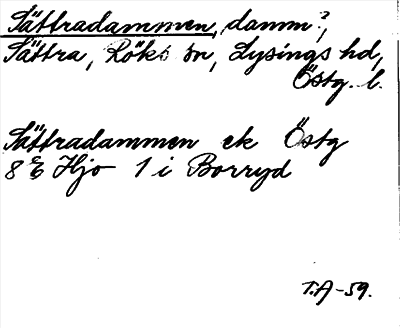 Sättradammen, damm?,
Sättra, Röks sn, Lysings hd,
Östg. l.
Sättradammen ek Östg
8 E Hjo 1 i Borryd
T.A-59.